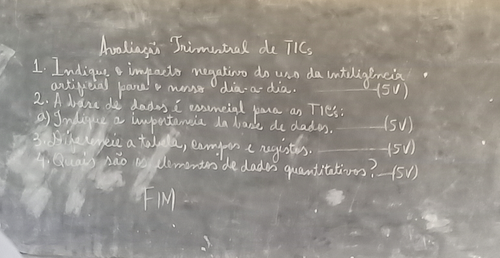 Avaliação Trimentral de TICs
1. Indique o impacto negativo do uso da inteligência
artificial para o nosso dia-a-dia. (5V)
2. A base de dados é essencial para as TICs:
a) Indique a importancia da base de dados. (5V)
3. Diferencie a tabela, campos e registos. (5V)
4. Quais são os elementos de dados quantitativos? (5V)
FIM